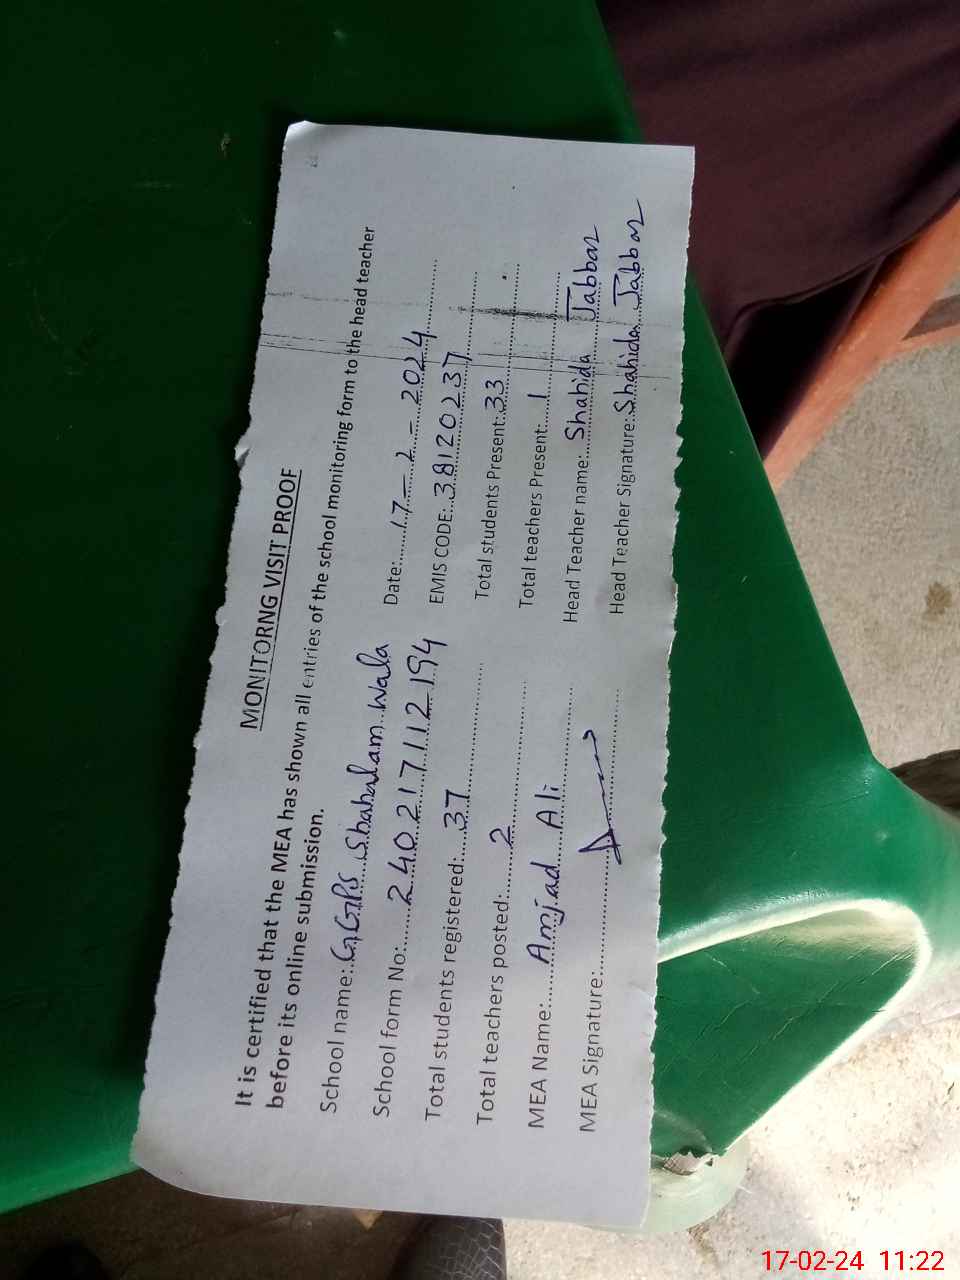 MONITORNG VISIT PROOF
It is certified that the MEA has shown all entries of the school monitoring form to the head teacher
before its online submission.
School name:..GGPS Shahalam Wala Date:......17-2-2024
School form No:....240217112194 EMIS CODE:..38120237
Total students registered:....37 Total students Present:.33
Total teachers posted:....2 Total teachers Present:....1
MEA Name:....Amjad Ali Head Teacher name:..Shahida Jabbar
MEA Signature:.... Head Teacher Signature:.Shahida Jabbar
17-02-24 11:22